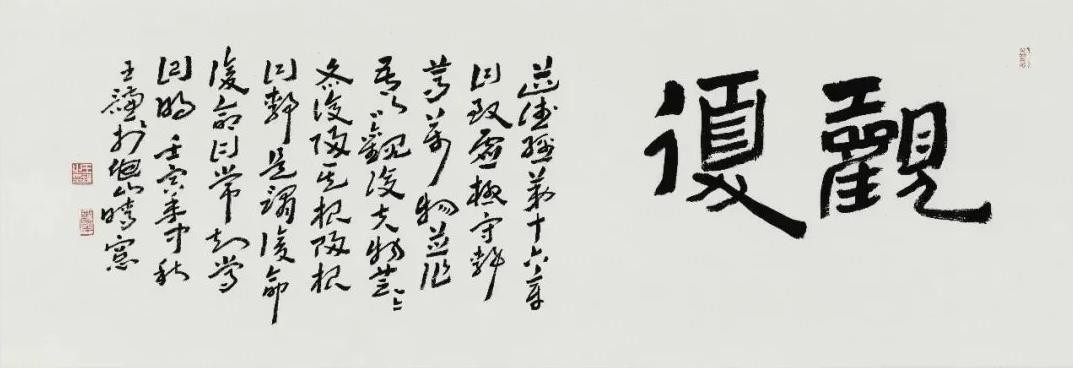 觀復
道德經第十六章
曰致虛極守靜
篤萬物並作
吾以觀復夫物芸〻
各復歸其根歸根
曰靜是謂復命
復命曰常知常
曰明 壬寅年中秋
王 於 山晴窗